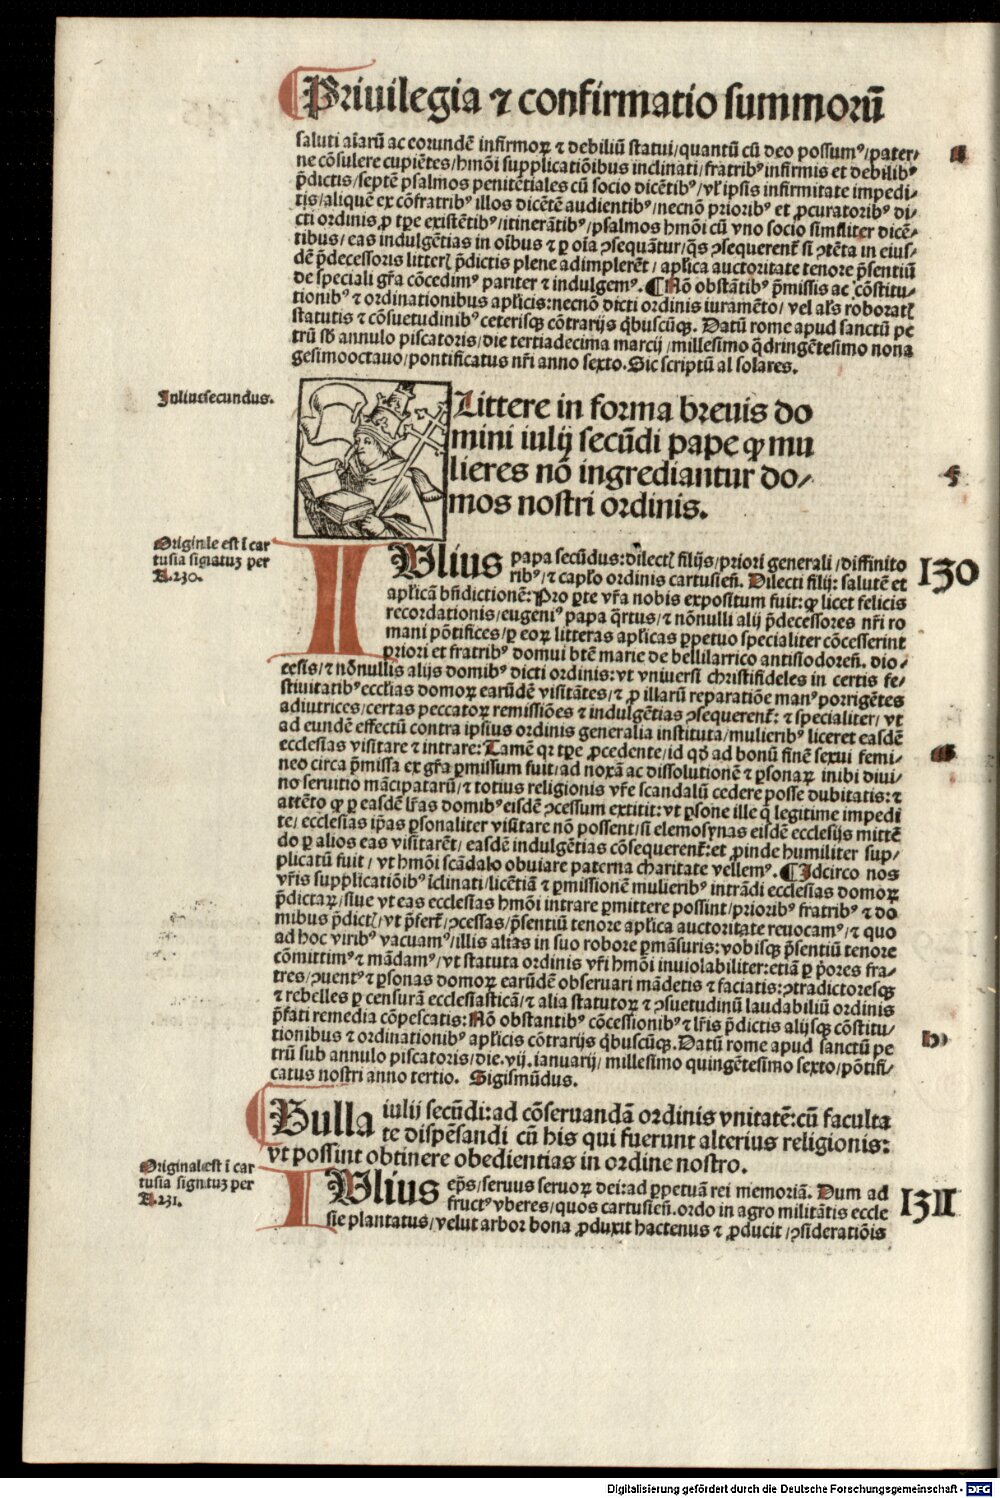 Priuilegia ⁊ confirmatio summorū
saluti aīarū ac eorundē infirmoꝝ ⁊ debiliū statui/quantū cū deo possumꝰ/pater⸗
ne cōsulere cupiētes/hmōi supplicatiōibus inclinati/fratribꝰ infirmis et debilibꝰ
p̄dictis/septē psalmos penitētiales cū socio dicētibꝰ/vl̓ ipsis infirmitate impedi⸗
tis/aliquē ex cōfratribꝰ illos dicētē audientibꝰ/necnō prioribꝰ et ꝓcuratoribꝰ di⸗
cti ordinis ꝑ tꝑe existētibꝰ/itinerātibꝰ/psalmos hmōi cū vno socio similiter dicē⸗
tibus/eas indulgētias in oībus ⁊ ꝑ oīa ꝯsequātur/q̄s ꝯsequerent̄ si ꝯtēta in eius⸗
dē p̄decessoris litterꝭ p̄dictis plene adimplerēt/ apl̓ica auctoritate tenore p̄sentiū
de speciali gr̄a cōcedimꝰ pariter ⁊ indulgemꝰ. ¶ Nō obstātibꝰ p̄missis ac cōstitu⸗
tionibꝰ ⁊ ordinationibus apl̓icis:necnō dicti ordinis iuramēto/ vel al̓s roboratꝭ
statutis ⁊ cōsuetudinibꝰ ceterisqꝫ cōtrarijs q̄buscūqꝫ. Datū rome apud sanctū pe
trū sb̄ annulo piscatoris/die tertiadecima marcij/millesimo q̄dringētesimo nona
gesimooctauo/pontificatus nr̄i anno sexto. Sic scriptū al solares.
Iulius secundus.
Littere in forma breuis do
mini iulij secūdi pape ꝙ mu
lieres nō ingrediantur do⸗
mos nostri ordinis.
Originale est ī car
tusia signatuꝫ per
A.230.
IVlius papa secūdus:dilectꝭ filijs/priori generali/diffinito
130
ribꝰ/⁊ capl̓o ordinis cartusieñ. Dilecti filij: salutē et
apl̓icā bn̄dictionē: Pro ꝑte vr̄a nobis expositum fuit: ꝙ licet felicis
recordationis/eugeniꝰ papa q̄rtus/⁊ nōnulli alij p̄decessores nr̄i ro
mani pōtifices/ꝑ eoꝝ litteras apl̓icas ꝑpetuo specialiter cōcesserint
priori et fratribꝰ domui btē marie de bellilarrico antisiodoreñ. dio⸗
cesis/⁊ nōnullis alijs domibꝰ dicti ordinis: vt vniuersi christifideles in certis fe⸗
stiuitatibꝰ eccl̓ias domoꝝ earūdē visitātes/⁊ ꝓ illarū reparatiōe manꝰ porrigētes
adiutrices/certas peccatoꝝ remissiōes ⁊ indulgētias ꝯsequerent̄: ⁊ specialiter/ vt
ad eundē effectū contra ipsius ordinis generalia instituta/mulieribꝰ liceret easdē
ecclesias visitare ⁊ intrare: Tamē qꝛ tꝑe ꝓcedente/id qd̄ ad bonū finē sexui femi⸗
neo circa p̄missa ex gr̄a ꝑmissum fuit/ad noxā ac dissolutionē ⁊ ꝑsonaꝝ inibi diui⸗
no seruitio mācipatarū/⁊ totius religionis vr̄e scandalū cedere posse dubitatis: ⁊
attēto ꝙ ꝑ easdē lr̄as domibꝰ eisdē ꝯcessum extitit: vt ꝑsone ille q̄ legitime impedi
te/ ecclesias ip̄as ꝑsonaliter visitare nō possent/si elemosynas eisdē ecclesijs mittē
do ꝑ alios eas visitarēt/ easdē indulgētias cōsequerent̄: et ꝓinde humiliter sup⸗
plicatū fuit/ vt hmōi scādalo obuiare paterna charitate vellemꝰ. ¶ Idcirco nos
vr̄is supplicatiōibꝰ īclinati/licētiā ⁊ ꝑmissionē mulieribꝰ intrādi ecclesias domoꝝ
p̄dictaꝝ/siue vt eas ecclesias hmōi intrare ꝑmittere possint/prioribꝰ fratribꝰ ⁊ do
mibus p̄dictꝭ/vt p̄fert̄/ꝯcessas/p̄sentiū tenore apl̓ica auctoritate reuocamꝰ/⁊ quo
ad hoc viribꝰ vacuamꝰ/illis alias in suo robore ꝑmāsuris: vobisqꝫ p̄sentiū tenore
cōmittimꝰ ⁊ mādamꝰ/vt statuta ordinis vr̄i hmōi inuiolabiliter:etiā ꝑ p̄ores fra⸗
tres/ꝯuentꝰ ⁊ ꝑsonas domoꝝ earūdē obseruari mādetis ⁊ faciatis: ꝯtradictoresqꝫ
⁊ rebelles ꝑ censurā ecclesiasticā/⁊ alia statutoꝝ ⁊ ꝯsuetudinū laudabiliū ordinis
p̄fati remedia cōpescatis: Nō obstantibꝰ cōcessionibꝰ ⁊ lr̄is p̄dictis alijsqꝫ cōstitu⸗
tionibus ⁊ ordinationibꝰ apl̓icis cōtrarijs q̄buscūqꝫ. Datū rome apud sanctū pe
trū sub annulo piscatoris/die.vij.ianuarij/ millesimo quingētesimo sexto/pōtifi⸗
catus nostri anno tertio. Sigismūdus.
Bulla iulij secūdi: ad cōseruandā ordinis vnitatē: cū faculta
te dispēsandi cū his qui fuerunt alterius religionis:
vt possint obtinere obedientias in ordine nostro.
Original est ī car
tusia signatuꝫ per
A.231.
IVlius ep̄s/seruus seruoꝝ dei: ad ꝑpetuā rei memoriā. Dum ad
1311
fructꝰ vberes/quos cartusieñ. ordo in agro militātis eccle
sie plantatus/velut arbor bona ꝓduxit hactenus ⁊ ꝓducit/ꝯsideratiōis
Digitalisierung gefördert durch die Deutsche Forschungsgemeinschaft - DFG